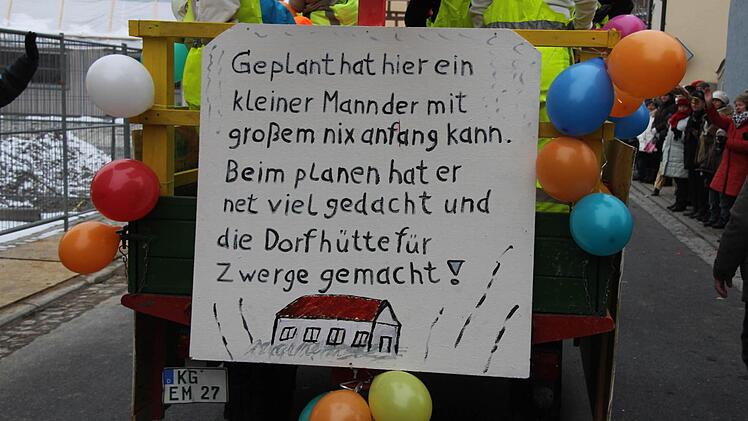 Geplant hat hier ein
kleiner Mann der mit
großem nix anfang kann.
Beim planen hat er
net viel gedacht und
die Dorfhütte für
Zwerge gemacht!
KG
EM 27